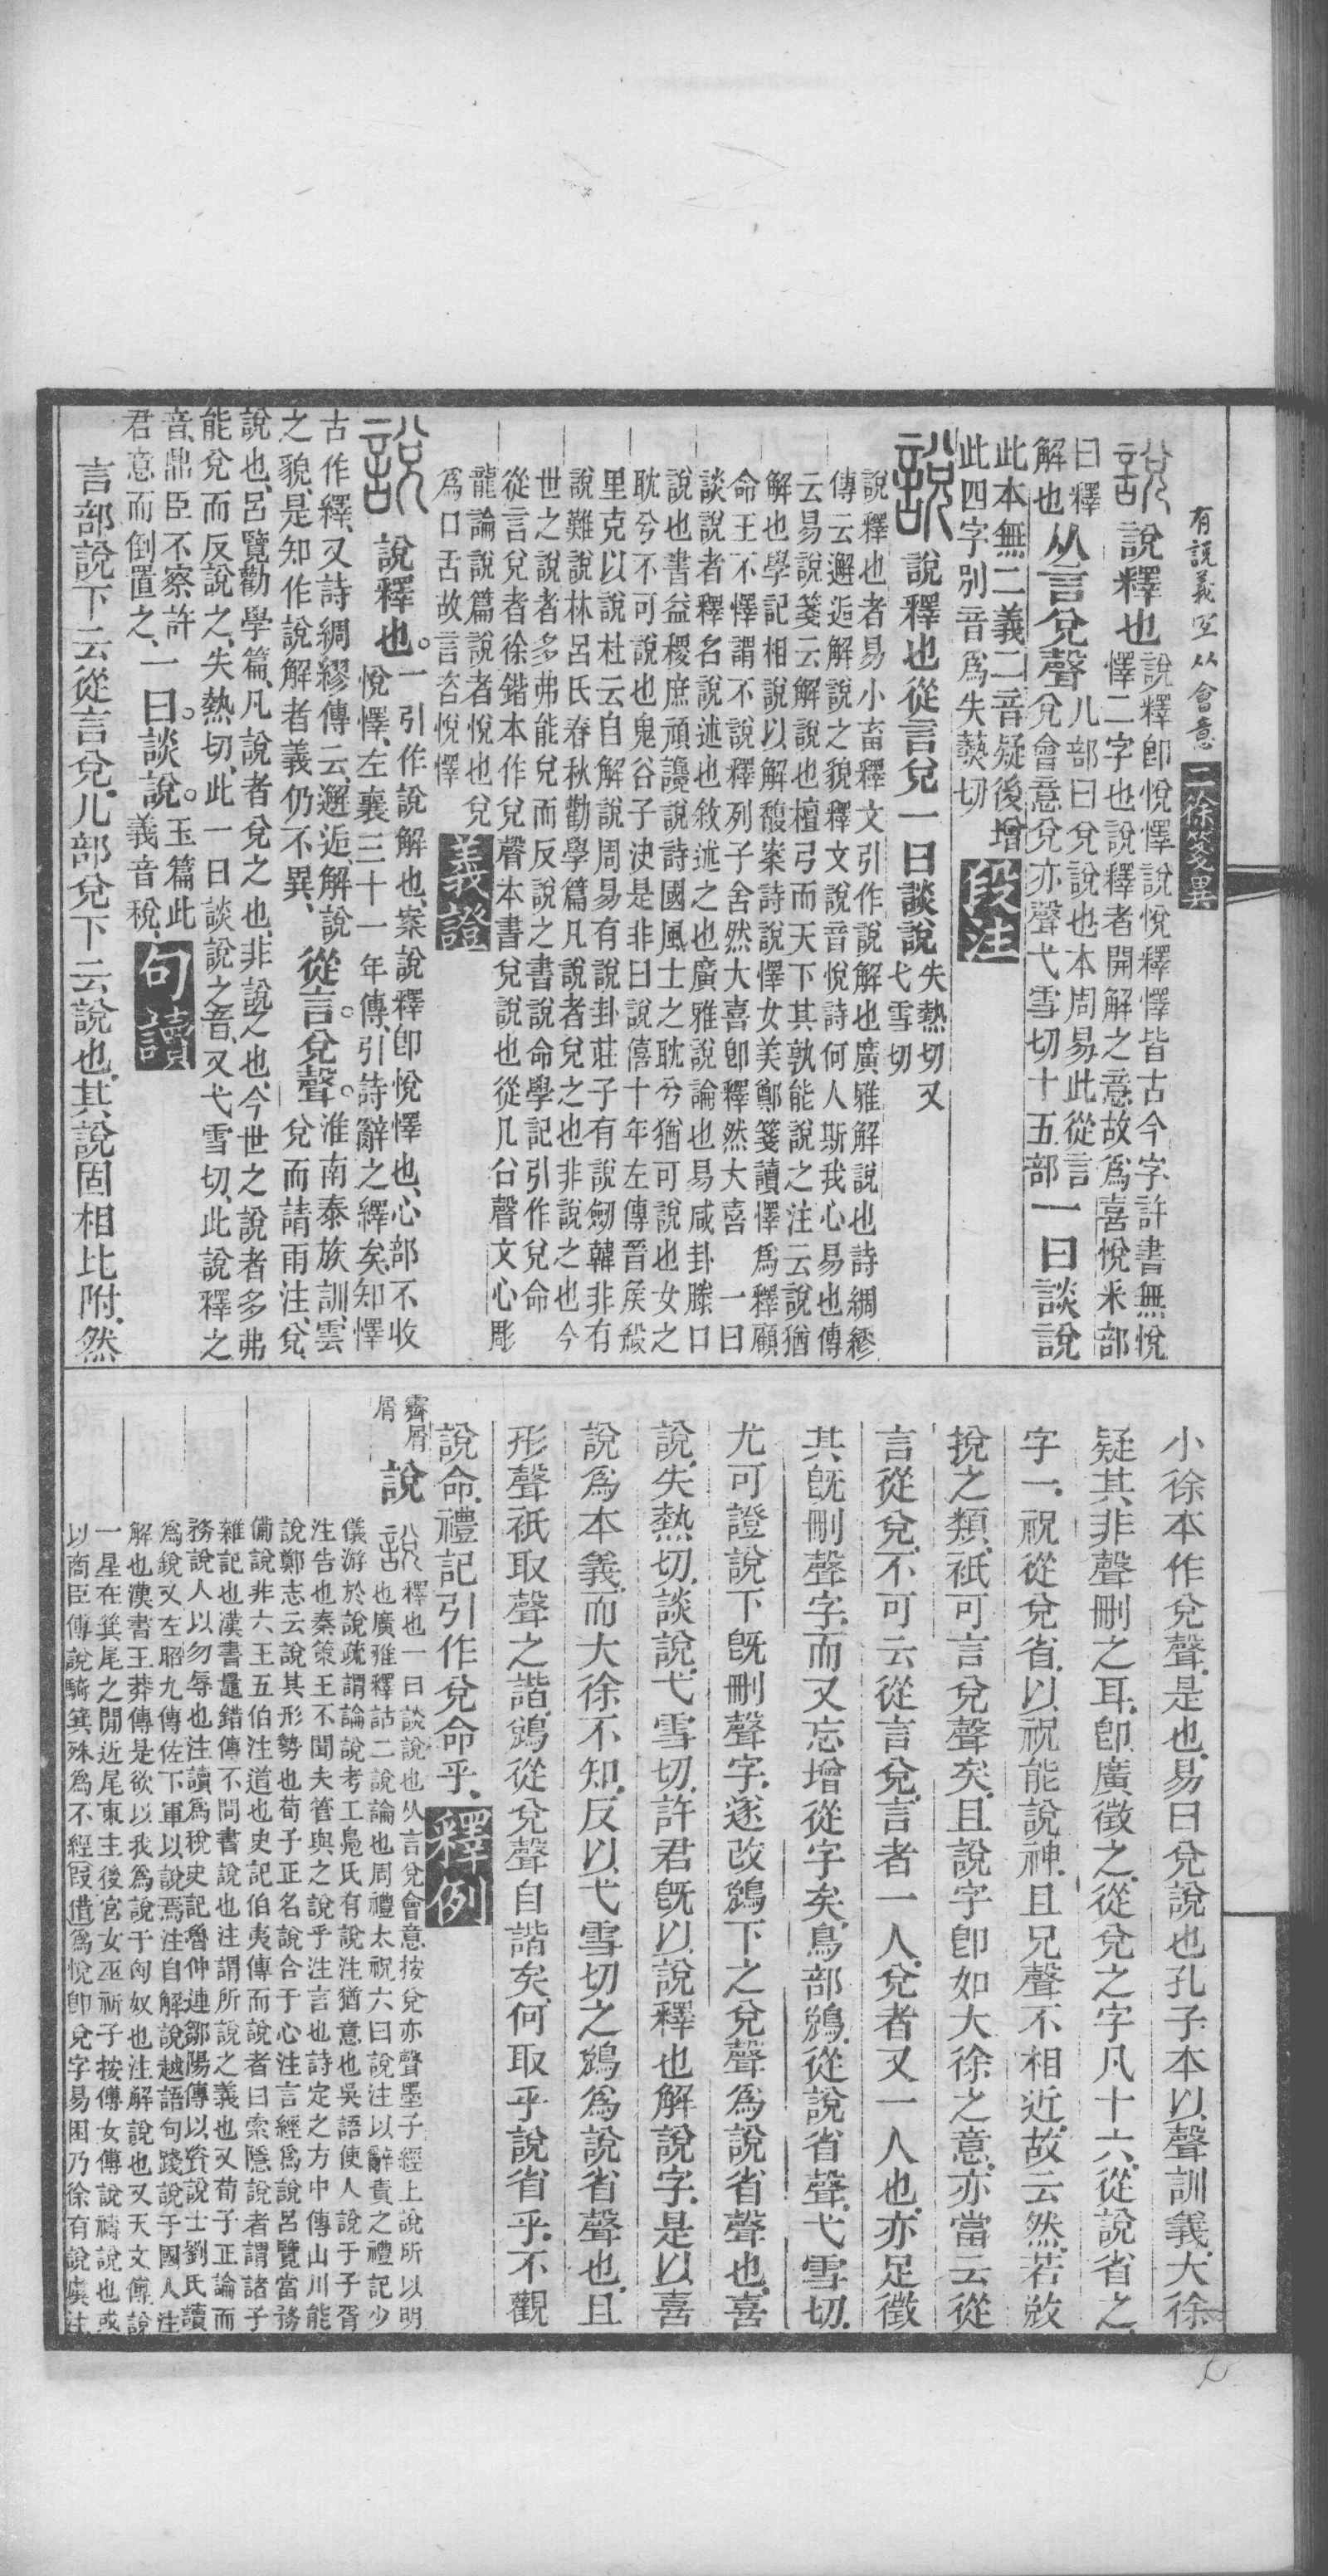 有說義宜从會意 二徐箋異
說 說釋也 說釋卽悅懌說悅釋懌皆古今字許書無悅
懌二字也說釋者開解之意故爲喜悅采部
曰釋
解也 从言兌聲 儿部曰兌說也本周易此從言
兌會意兌亦聲弋雪切十五部 一曰談說
此本無二義二音疑後增
此四字別音爲失爇切 段注
說 說釋也從言兌一曰談說 失熱切又
弋雪切
說釋也者易小畜釋文引作說解也廣雅解說也詩綢繆
傳云邂逅解說之貌釋文說音悅詩何人斯我心易也傳
云易說箋云解說也檀弓而天下其孰能說之注云說猶
解也學記相說以解馥案詩說懌女美鄭箋讀懌爲釋顧
命王不懌謂不說釋列子舍然大喜卽釋然大喜 一曰
談說者釋名說述也敘述之也廣雅說論也易咸卦滕口
說也書益稷庶頑讒說詩國風士之耽兮猶可說也女之
耽兮不可說也鬼谷子決是非曰說僖十年左傳晉侯殺
里克以說杜云自解說周易有說卦莊子有說劒韓非有
說難說林呂氏春秋勸學篇凡說者兌之也非說之也今
世之說者多弗能兌而反說之書說命學記引作兌命
從言兌者徐鍇本作兌聲本書兌說也從儿㕣聲文心彫
龍論說篇說者悅也兌
爲口舌故言咨悅懌 義證
說 說釋也。 一引作說解也、案說釋卽悅懌也、心部不收
悅懌、左襄三十一年傳、引詩辭之繹矣、知懌
古作繹、又詩綢繆傳云、邂逅、解說
之貌、是知作說解者義仍不異、 從言。兌聲。 淮南泰族訓、雲
兌而請雨注、兌、
說也、呂覽勸學篇、凡說者兌之也、非說之也、今世之說者多弗
能兌而反說之、失熱切、此一曰談說之音、又弋雪切、此說釋之
音、鼎臣不察許
君意而倒置之、 一曰談說。 玉篇此
義音稅、 句讀
言部說下云從言兌。儿部兌下云說也。其說固相比附。然
小徐本作兌聲。是也。易曰兌說也孔子本以聲訓義。大徐
疑其非聲刪之耳。卽廣徵之。從兌之字凡十六。從說省之
字一。祝從兌省。以祝能說神。且兄聲不相近。故云然。若敓
挩之類。祇可言兌聲矣。且說字卽如大徐之意。亦當云從
言從兌。不可云從言兌。言者一人。兌者又一人也。亦足徵
其旣刪聲字。而又忘增從字矣。鳥部鴧。從說省聲。弋雪切。
尤可證說下旣刪聲字。遂改鴧下之兌聲爲說省聲也。喜
說。失熱切。談說。弋雪切。許君旣以說釋也解說字。是以喜
說爲本義。而大徐不知。反以弋雪切之鴧爲說省聲也。且
形聲祇取聲之諧。鴧從兌聲自諧矣。何取乎說省乎。不觀
說命。禮記引作兌命乎。 釋例
霽屑
屑 說 說 釋也一曰談說也从言兌會意按兌亦聲墨子經上說所以明
也廣雅釋詁二說論也周禮太祝六曰說注以辭責之禮記少
儀游於說疏謂論說考工鳧氏有說注猶意也吳語使人說于子胥
注告也秦策王不聞夫管與之說乎注言也詩定之方中傳山川能
說鄭志云說其形勢也荀子正名說合于心注言經爲說呂覽當務
備說非六王五伯注道也史記伯夷傳而說者曰索隱說者謂諸子
雜記也漢書鼂錯傳不問書說也注謂所說之義也又荀子正論而
務說人以勿辱也注讀爲稅史記魯仲連鄒陽傳以資說士劉氏讀
爲銳又左昭九傳佐下軍以說焉注自解說越語句踐說于國人注
解也漢書王莽傳是欲以我爲說于匈奴也注解說也又天文傳說
一星在箕尾之閒近尾東主後宮女巫祈子按傅女傳說禱說也或
以商臣傅說騎箕殊爲不經叚借爲悅卽兌字易困乃徐有說虞注